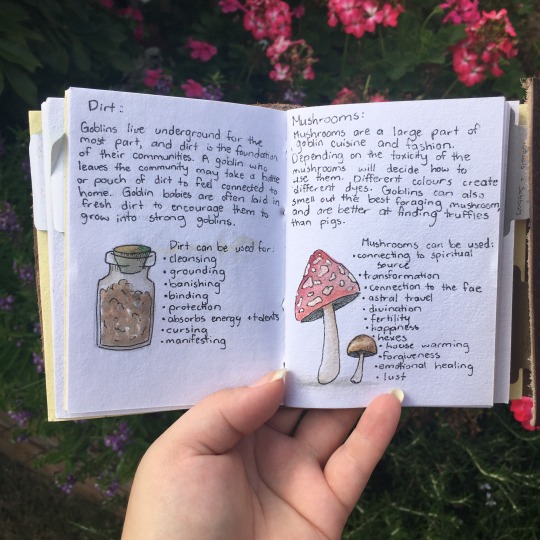 Dirt:
Goblins live underground for the
most part, and dirt is the foundation
of their communities. A goblin who
leaves the community may take a bottle
or pouch of dirt to feel connected to
home. Goblin babies are often laid in
fresh dirt to encourage them to
grow into strong goblins.
Dirt can be used for:
• cleansing
• grounding
• banishing
• binding
• protection
• absorbs energy + talents
• cursing
• manifesting
Mushrooms:
Mushrooms are a large part of
goblin cuisine and fashion.
Depending on the toxicity of the
mushrooms will decide how to
use them. Different colours create
different dyes. Goblins can also
smell out the best foraging mushroom
and are better at finding truffles
than pigs.
Mushrooms can be used:
• connecting to spiritual
source
• transformation
• connection to the fae
• astral travel
• divination
• fertility
• happiness
• hexes
• house warming
• forgiveness
• emotional healing
• lust